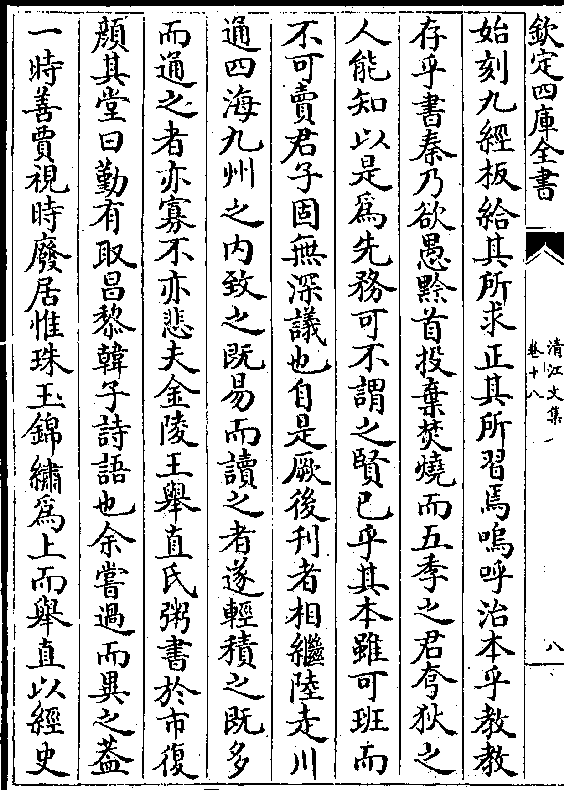 欽定四庫全書
清江文集
卷十八
八
始刻九經板給其所求正其所習焉嗚呼治本乎教教
存乎書秦乃欲愚黔首投棄焚燒而五季之君夸狄之
人能知以是爲先務可不謂之賢已乎其本雖可班而
不可賣君子固無深議也自是厥後刋者相繼陸走川
通四海九州之内致之既易而讀之者遂輕積之既多
而通之者亦寡不亦悲夫金陵王舉直氏粥書於市復
顔其堂曰勤有取昌黎韓子詩語也余嘗過而異之葢
一時善賈視時廢居惟珠玉錦繡爲上而舉直以經史